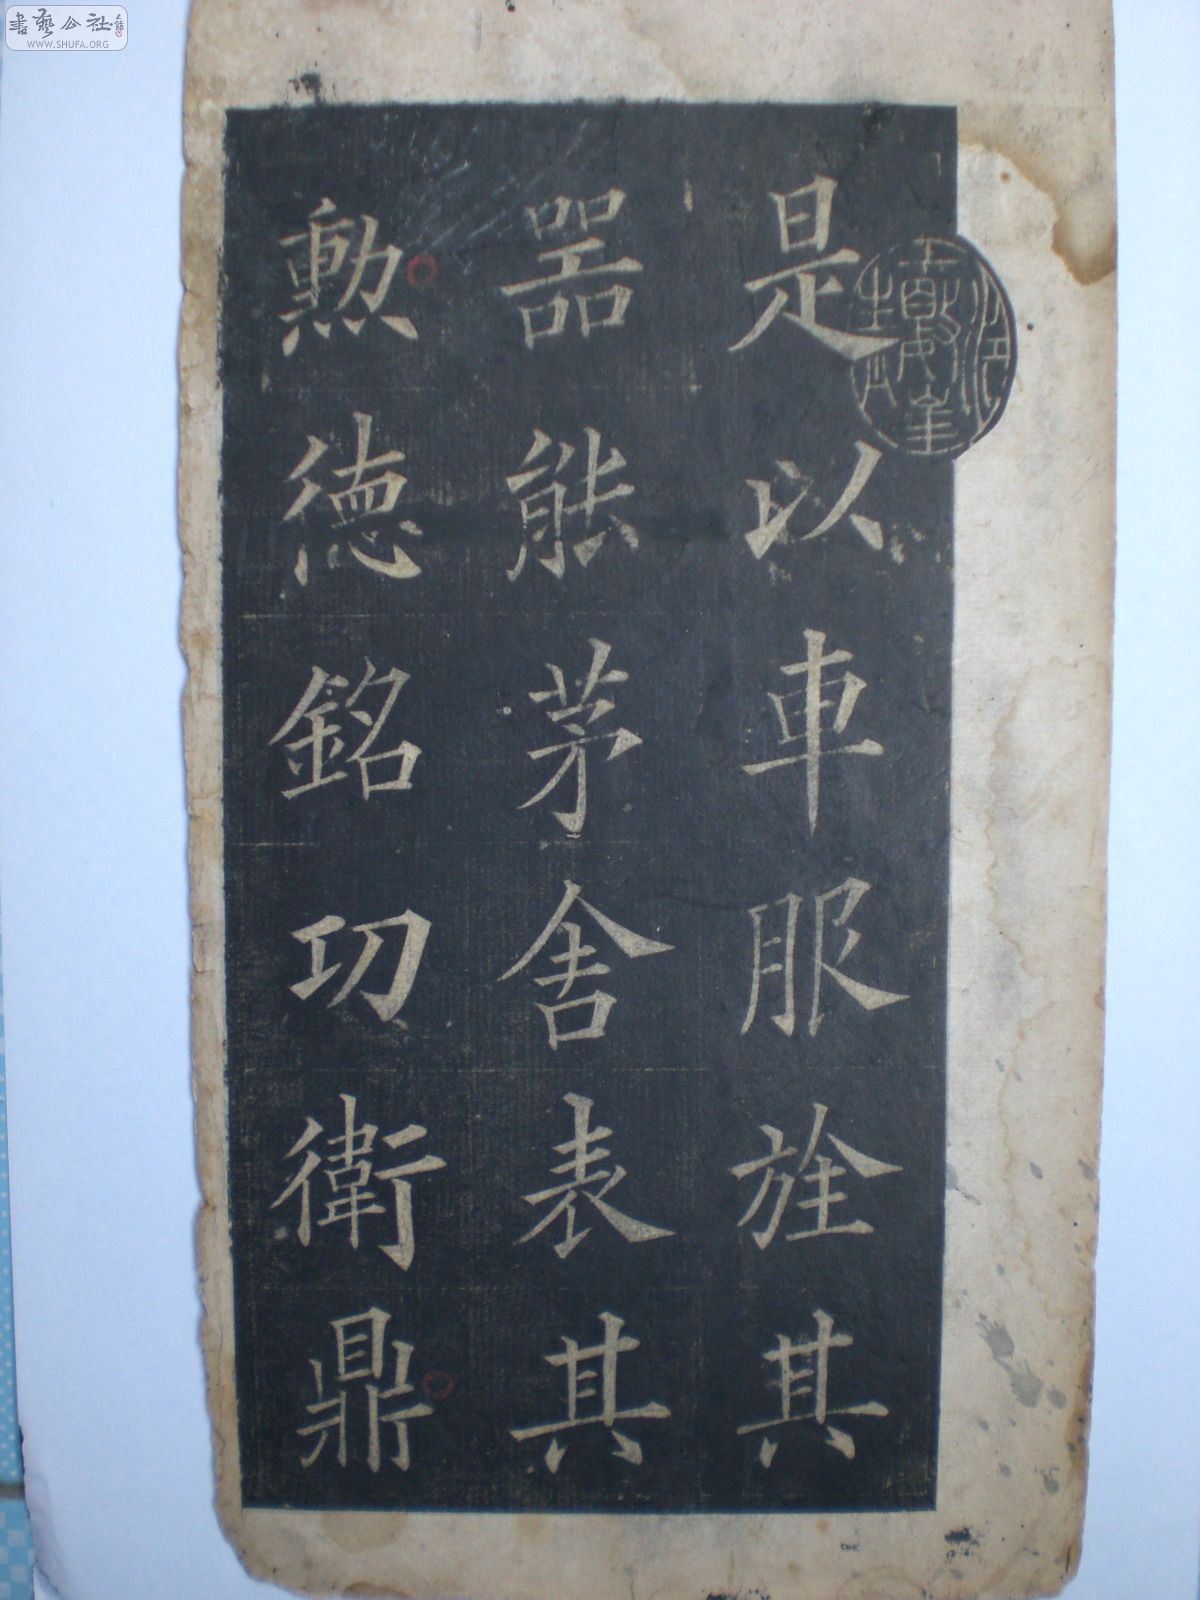 是以車服旌其
器能茅舍表其
勲德銘功衛鼎
書藝公社
WWW.SHUFA.ORG